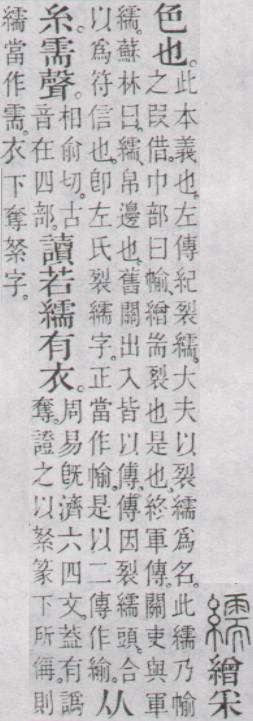 繻 繒采
色也。
此本義也。左傳紀裂繻。大夫以裂繻爲名。此繻乃㡏
之叚借。巾部曰㡏、繒耑裂也是也。終軍傳。關吏與軍
繻。蘇林曰。繻、帛邊也。舊關出入皆以傳。傳因裂繻頭。合
以爲符信也。卽左氏裂繻字。正當作㡏。是以二傳作緰。
从
糸需聲。
相俞切。古
音在四部。
讀若繻有衣。
周易旣濟六四文。葢有譌
奪。證之以䋈篆下所偁。則
繻當作需。衣下奪䋈字。